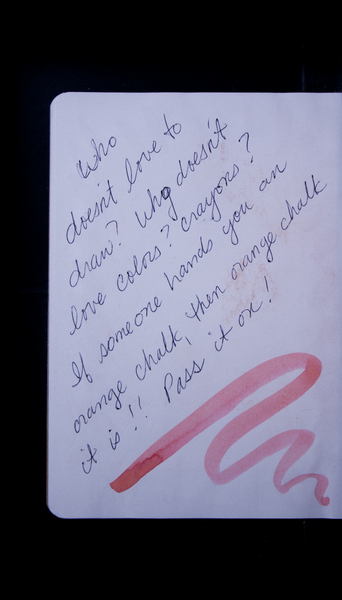 Who
doesn't love to
draw? Who doesn't
love colors? Crayons?
If someone hands you an
orange chalk, then orange chalk
it is!! Pass it on!